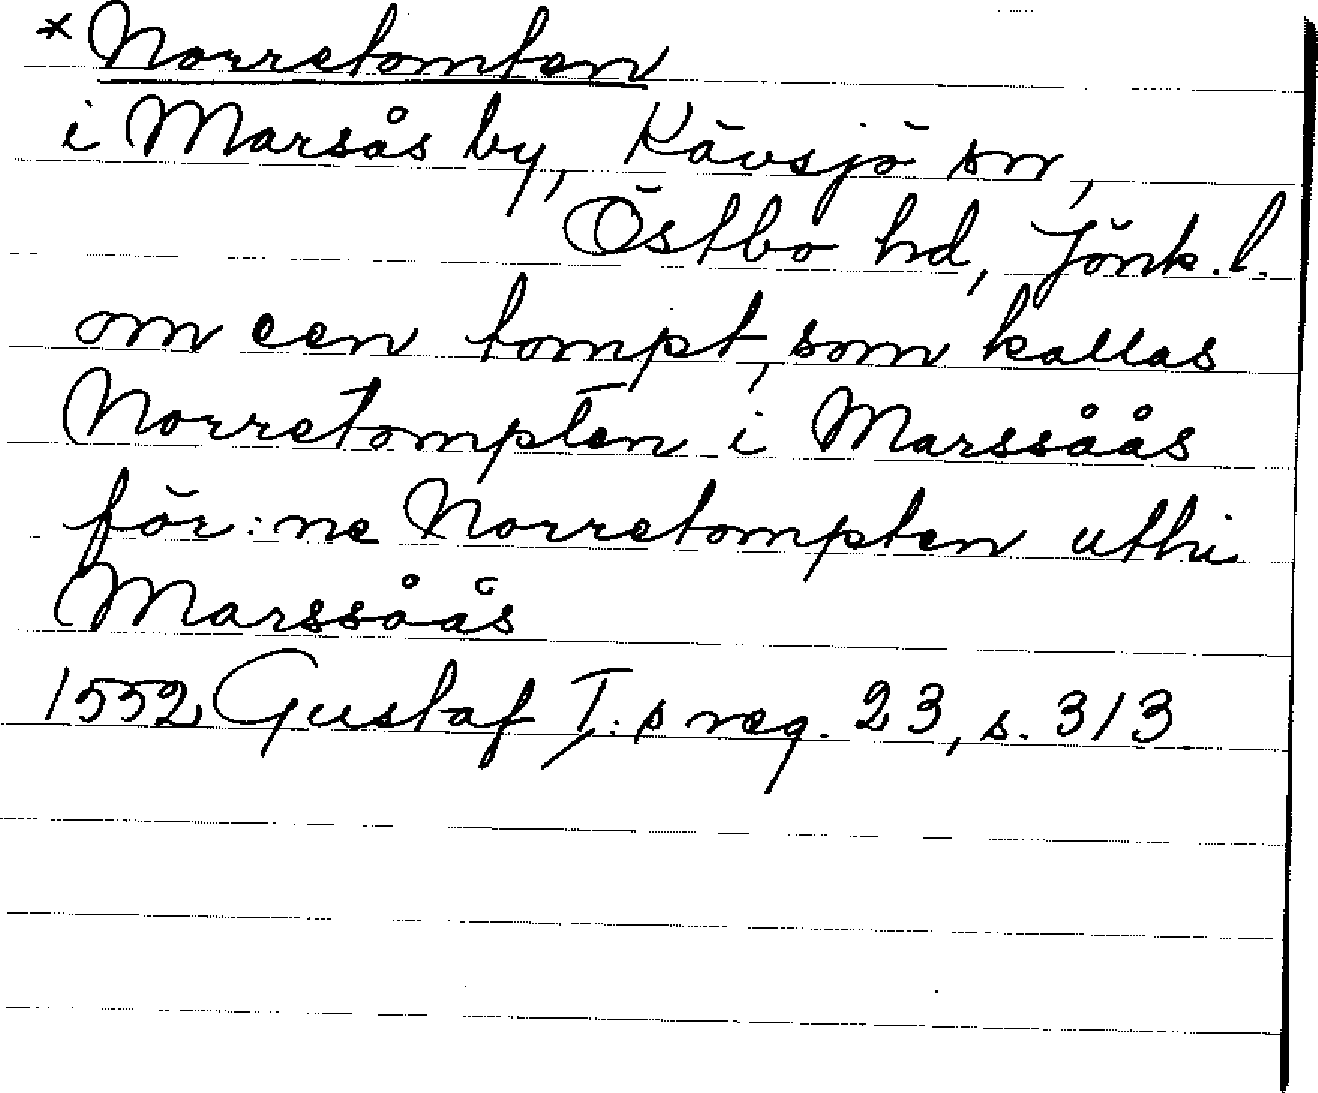 *Norretomten
i Marsås by, Kävsjö sn,
Östbo hd, Jönk. l.
om een tompt, som kallas
Norretompten i Marssåås
för:ne Norretompten uthi
Marssåås
1552 Gustaf I:s reg. 23, s. 313